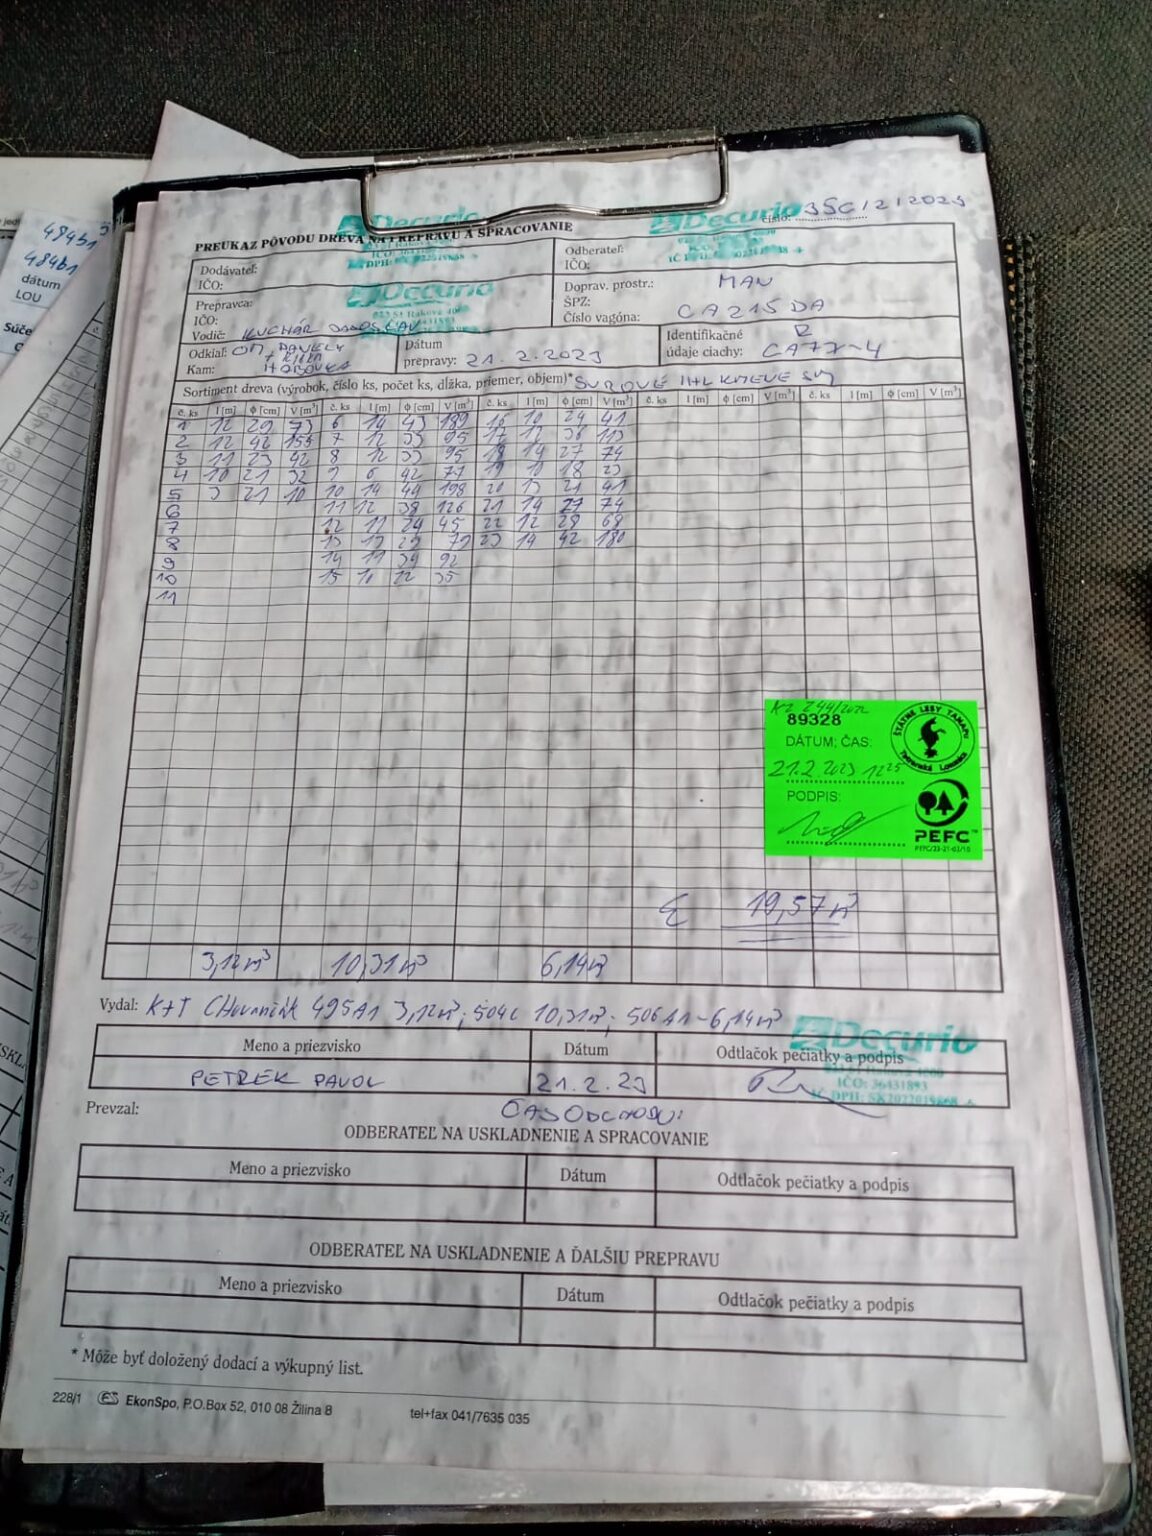 484b1
484b1
dátum
LOU
Decurio
Decurio
číslo: 35C/2/2023
PREUKAZ PÔVODU DREVA NA PREPRAVU A SPRACOVANIE
Dodávateľ:
IČO:
Odberateľ:
IČO:
Decurio
Prepravca:
IČO:
Vodič: KUCHÁR
Doprav. prostr.: MAN
ŠPZ: CA215DA
Číslo vagóna:
Odkiaľ:
Kam:
Dátum
prepravy: 21.2.2023
Identifikačné
údaje ciachy: CA77-4
Sortiment dreva (výrobok, číslo ks, počet ks, dĺžka, priemer, objem)*
č. ks l [m] ϕ [cm] V [m³] č. ks l [m] ϕ [cm] V [m³] č. ks l [m] ϕ [cm] V [m³] č. ks l [m] ϕ [cm] V [m³] č. ks l [m] ϕ [cm] V [m³]
1 12 29 73 6 14 43 189 16 10 24 41
2 12 42 155 7 12 33 95 17 36 113
3 11 23 42 8 12 33 95 18 14 27 74
4 10 21 32 9 6 42 77 19 10 18 23
5 3 21 10 10 14 44 198 20 13 21 41
6 11 12 38 126 21 14 27 74
7 12 11 24 45 22 12 28 68
8 13 29 23 14 42 180
9 14 11 34 92
10 15 35
11
KZ 244/2022
89328
DÁTUM; ČAS:
21.2.2023 12 25
PODPIS:
ŠTÁTNE LESY TANAPU
Tatranská Lomnica
PEFC™
PEFC/23-21-03/10
Σ 19,57m³
3,12m³ 10,31m³ 6,14m³
Vydal: K+T 495A1 3,12m³; 504C 10,31m³; 506A1-6,14m³
Decurio
Meno a priezvisko Dátum Odtlačok pečiatky a podpis
PETREK PAVOL 21.2.23
IČO: 36431893
IČ DPH: SK2022019868
Prevzal: ČAS ODCHODU:
ODBERATEĽ NA USKLADNENIE A SPRACOVANIE
Meno a priezvisko Dátum Odtlačok pečiatky a podpis
ODBERATEĽ NA USKLADNENIE A ĎALŠIU PREPRAVU
Meno a priezvisko Dátum Odtlačok pečiatky a podpis
* Môže byť doložený dodací a výkupný list.
228/1 ES EkonSpo, P.O.Box 52, 010 08 Žilina 8 tel+fax 041/7635 035